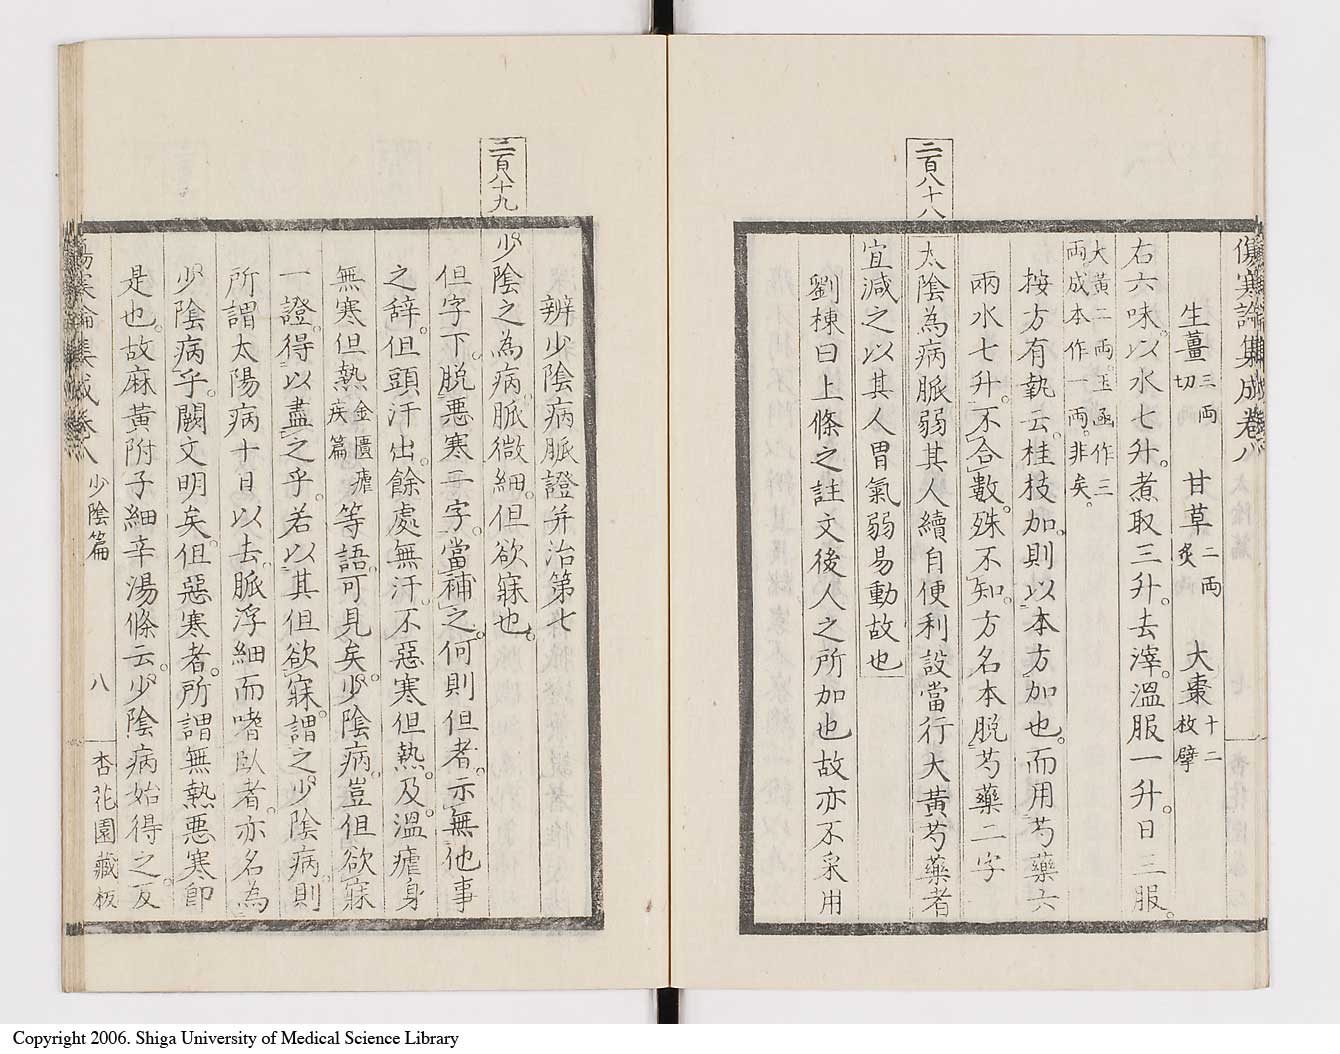 傷寒論集成卷八
二百八十八
生薑三両切 甘草二両炙 大棗十二枚擘
右六味。以水七升。煮取三升。去滓。溫服一升。日三服。
大黃二両。玉函作三両成本作一両。非矣。
按方有執云。桂枝加。則以本方加也。而用芍藥六
兩水七升。不合數。殊不知。方名本脱芍藥二字
太陰為病脈弱其人續自便利設當行大黃芍藥者
宜減之以其人胃氣弱易動故也
劉棟曰上條之註文後人之所加也故亦不采用
二百八十九
辨少陰病脈證并治第七
少陰之為病。脈微細。但欲寐也。
但字下。脱惡寒二字。當補之。何則但者。示無他事
之辞。但頭汗出。餘處無汗。不惡寒但熱。及溫瘧身
無寒但熱金匱瘧疾篇等語。可見矣。少陰病。豈但欲寐
一證。得以盡之乎。若以其但欲寐。謂之少陰病。則
所謂太陽病十日以去。脈浮細而嗜臥者。亦名為
少陰病乎。闕文明矣。但惡寒者。所謂無熱惡寒即
是也。故麻黃附子細辛湯條云。少陰病始得之。反
傷寒論集成卷八 少陰篇 八 杏花園藏板
Copyright 2006. Shiga University of Medical Science Library